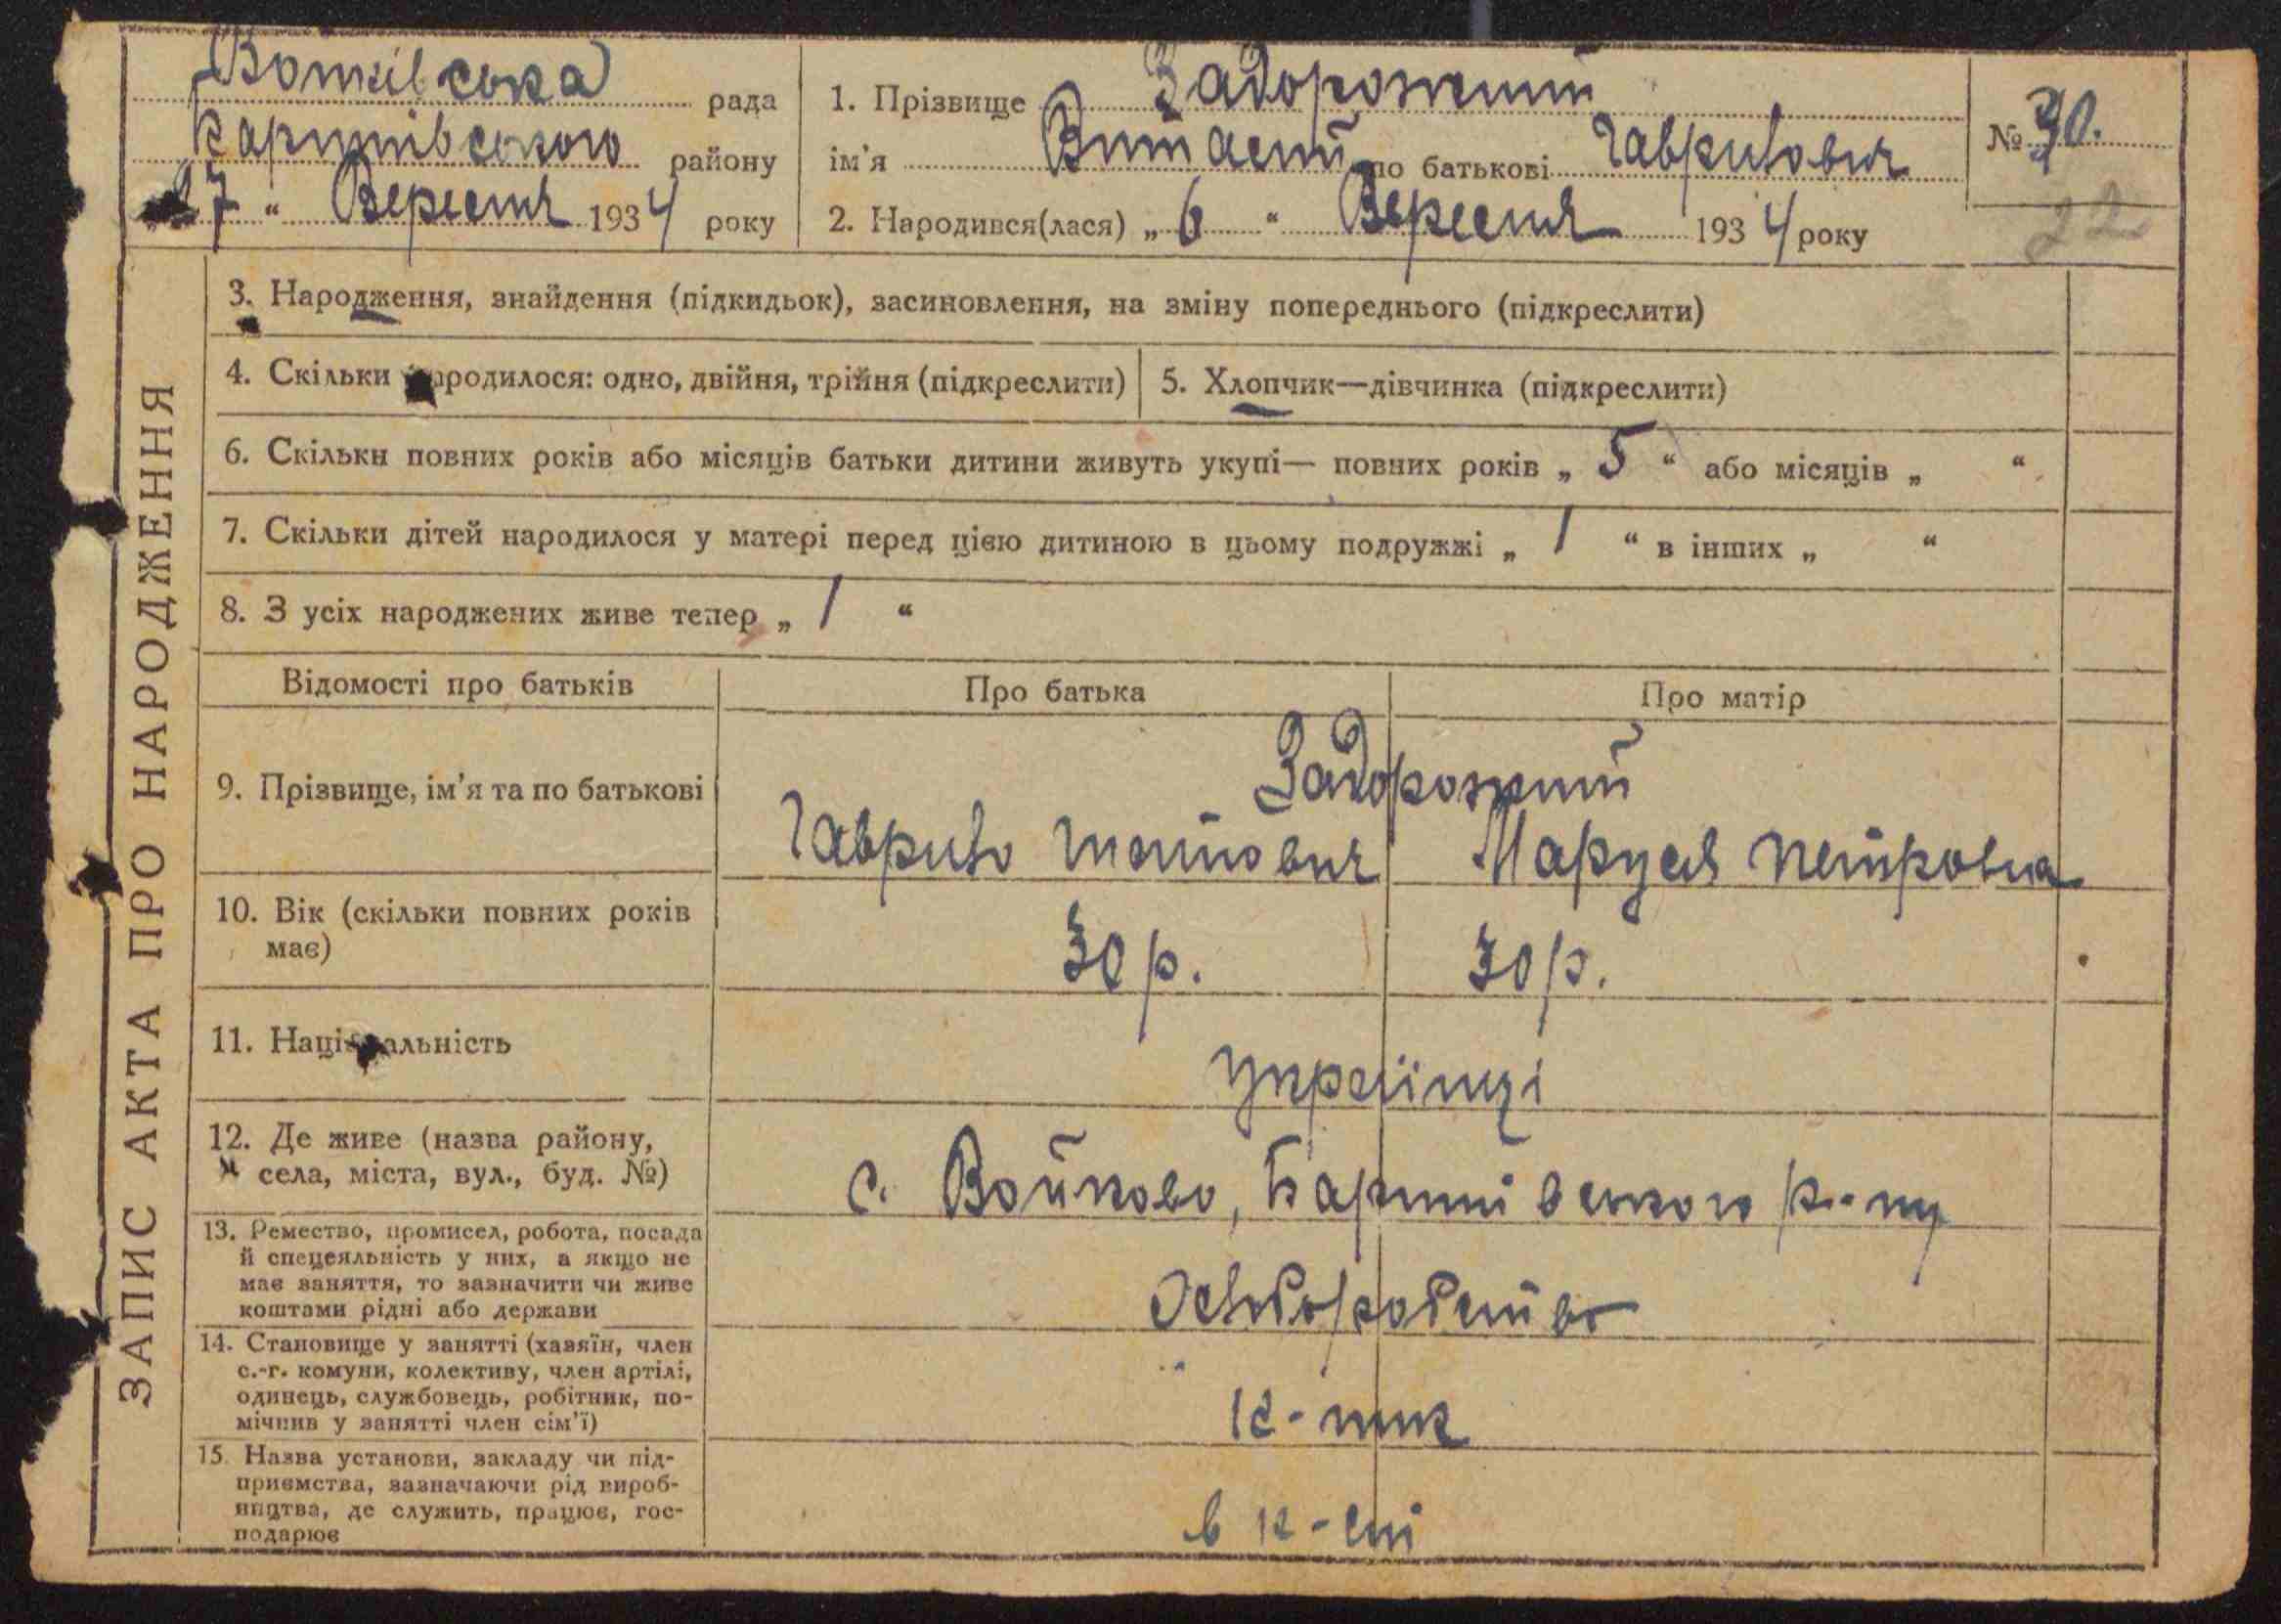 Войківська рада
Баришівського району
27 " Вересня 1934 року
1. Прізвище Задорожний
ім'я Виталий по батькові Гаврилович
2. Народився(лася) „ 6 " Вересня 1934 року
№ 30.
22
ЗАПИС АКТА ПРО НАРОДЖЕННЯ
3. Народження, знайдення (підкидьок), засиновлення, на зміну попереднього (підкреслити)
4. Скільки народилося: одно, двійня, трійня (підкреслити)
5. Хлопчик—дівчинка (підкреслити)
6. Скільки повних років або місяців батьки дитини живуть укупі— повних років „ 5 " або місяців „ "
7. Скільки дітей народилося у матері перед цією дитиною в цьому подружжі „ 1 " в інших „ "
8. З усіх народжених живе тепер „ 1 "
Відомості про батьків
Про батька
Про матір
9. Прізвище, ім'я та по батькові
Задорожний
Гаврило
Маруся Петровна
10. Вік (скільки повних років
має)
30 р.
30 р.
11. Національність
Українці
12. Де живе (назва району,
села, міста, вул., буд. №)
с. Войково, Баришівського р-ну
13. Ремество, промисел, робота, посада
й спецеяльність у них, а якщо не
має заняття, то зазначити чи живе
коштами рідні або держави
14. Становище у занятті (хазяїн, член
с.-г. комуни, колективу, член артілі,
одинець, службовець, робітник, по-
мічнив у занятті член сім'ї)
к-ник
15. Назва установи, закладу чи під-
приємства, зазначаючи рід вироб-
ництва, де служить, працює, гос-
подарює
в к-спі